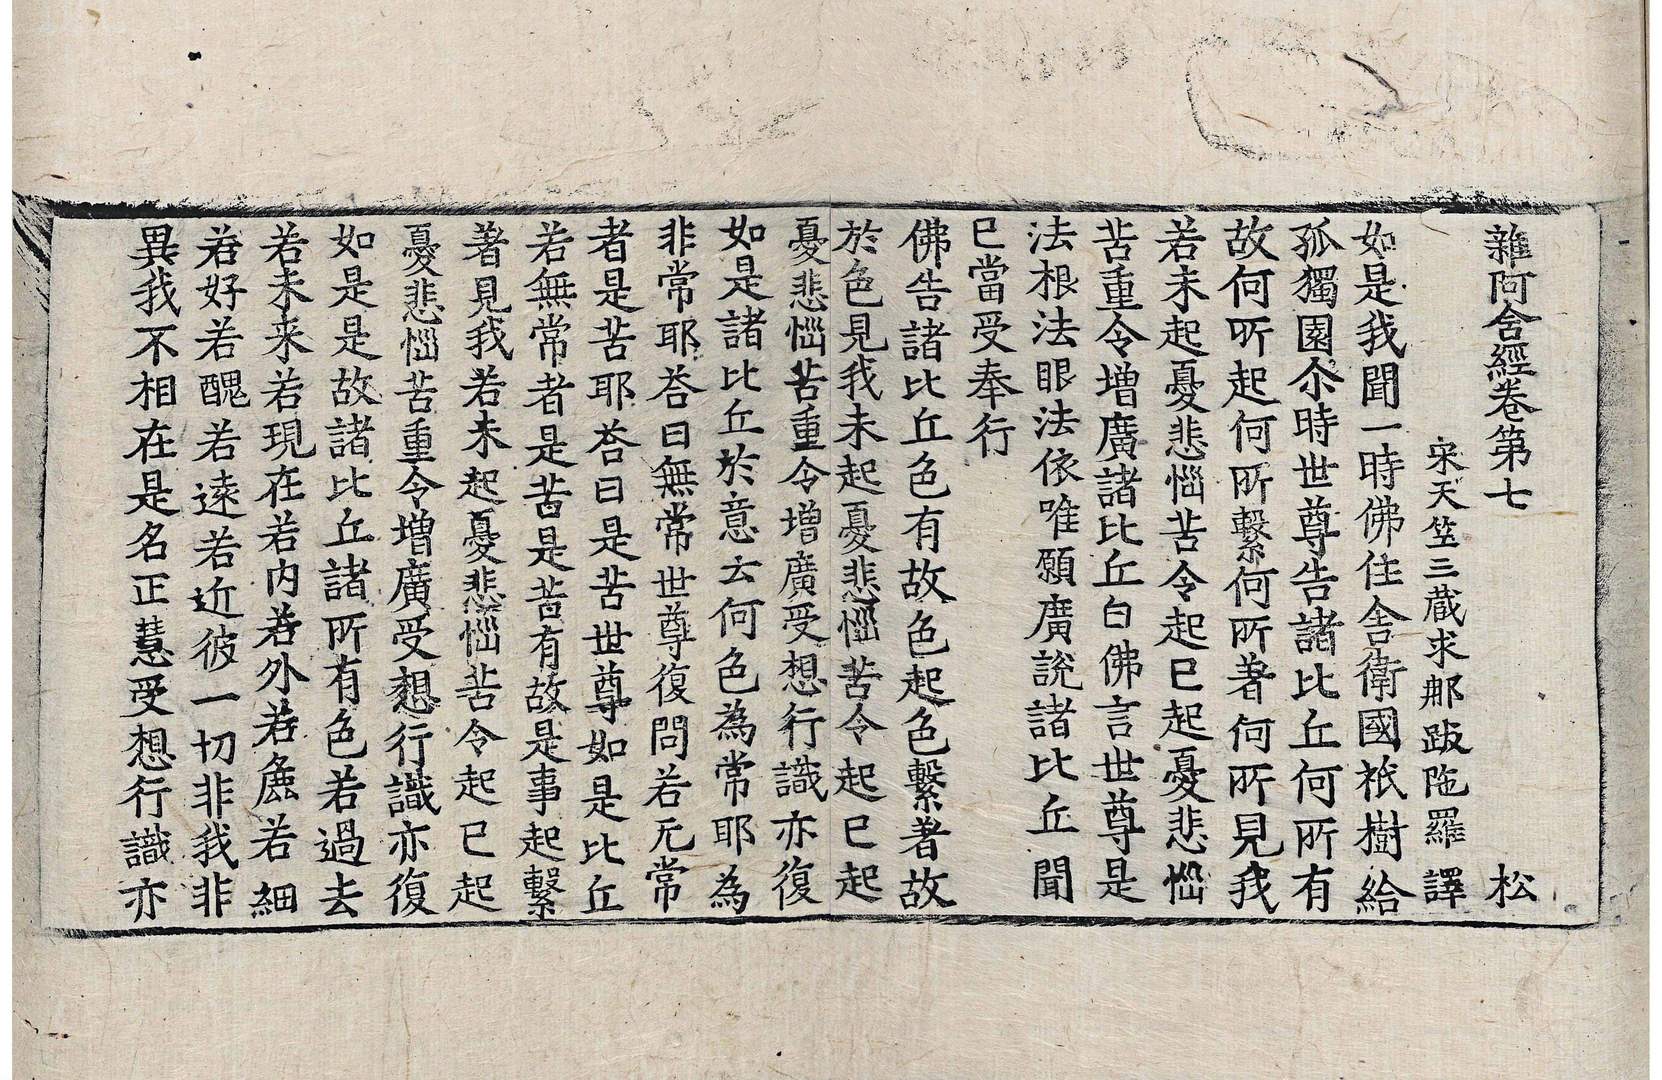 雜阿含經卷第七　松
宋天竺三蔵求那跋陁羅譯
如是我聞一時佛住舎衛國祇樹給
孤獨園尒時世尊告諸比丘何所有
故何所起何所繫何所著何所見我
若未起憂悲惱苦令起已起憂悲惱
苦重令增廣諸比丘白佛言世尊是
法根法眼法依唯願廣說諸比丘聞
已當受奉行
佛告諸比丘色有故色起色繫著故
於色見我未起憂悲惱苦令起已起
憂悲惱苦重令增廣受想行識亦復
如是諸比丘於意云何色為常耶為
非常耶荅曰無常世尊復問若无常
者是苦耶荅曰是苦世尊如是比丘
若無常者是苦是苦有故是事起繫
著見我若未起憂悲惱苦令起已起
憂悲惱苦重令增廣受想行識亦復
如是是故諸比丘諸所有色若過去
若未来若現在若内若外若麁若細
若好若醜若遠若近彼一切非我非
異我不相在是名正慧受想行識亦